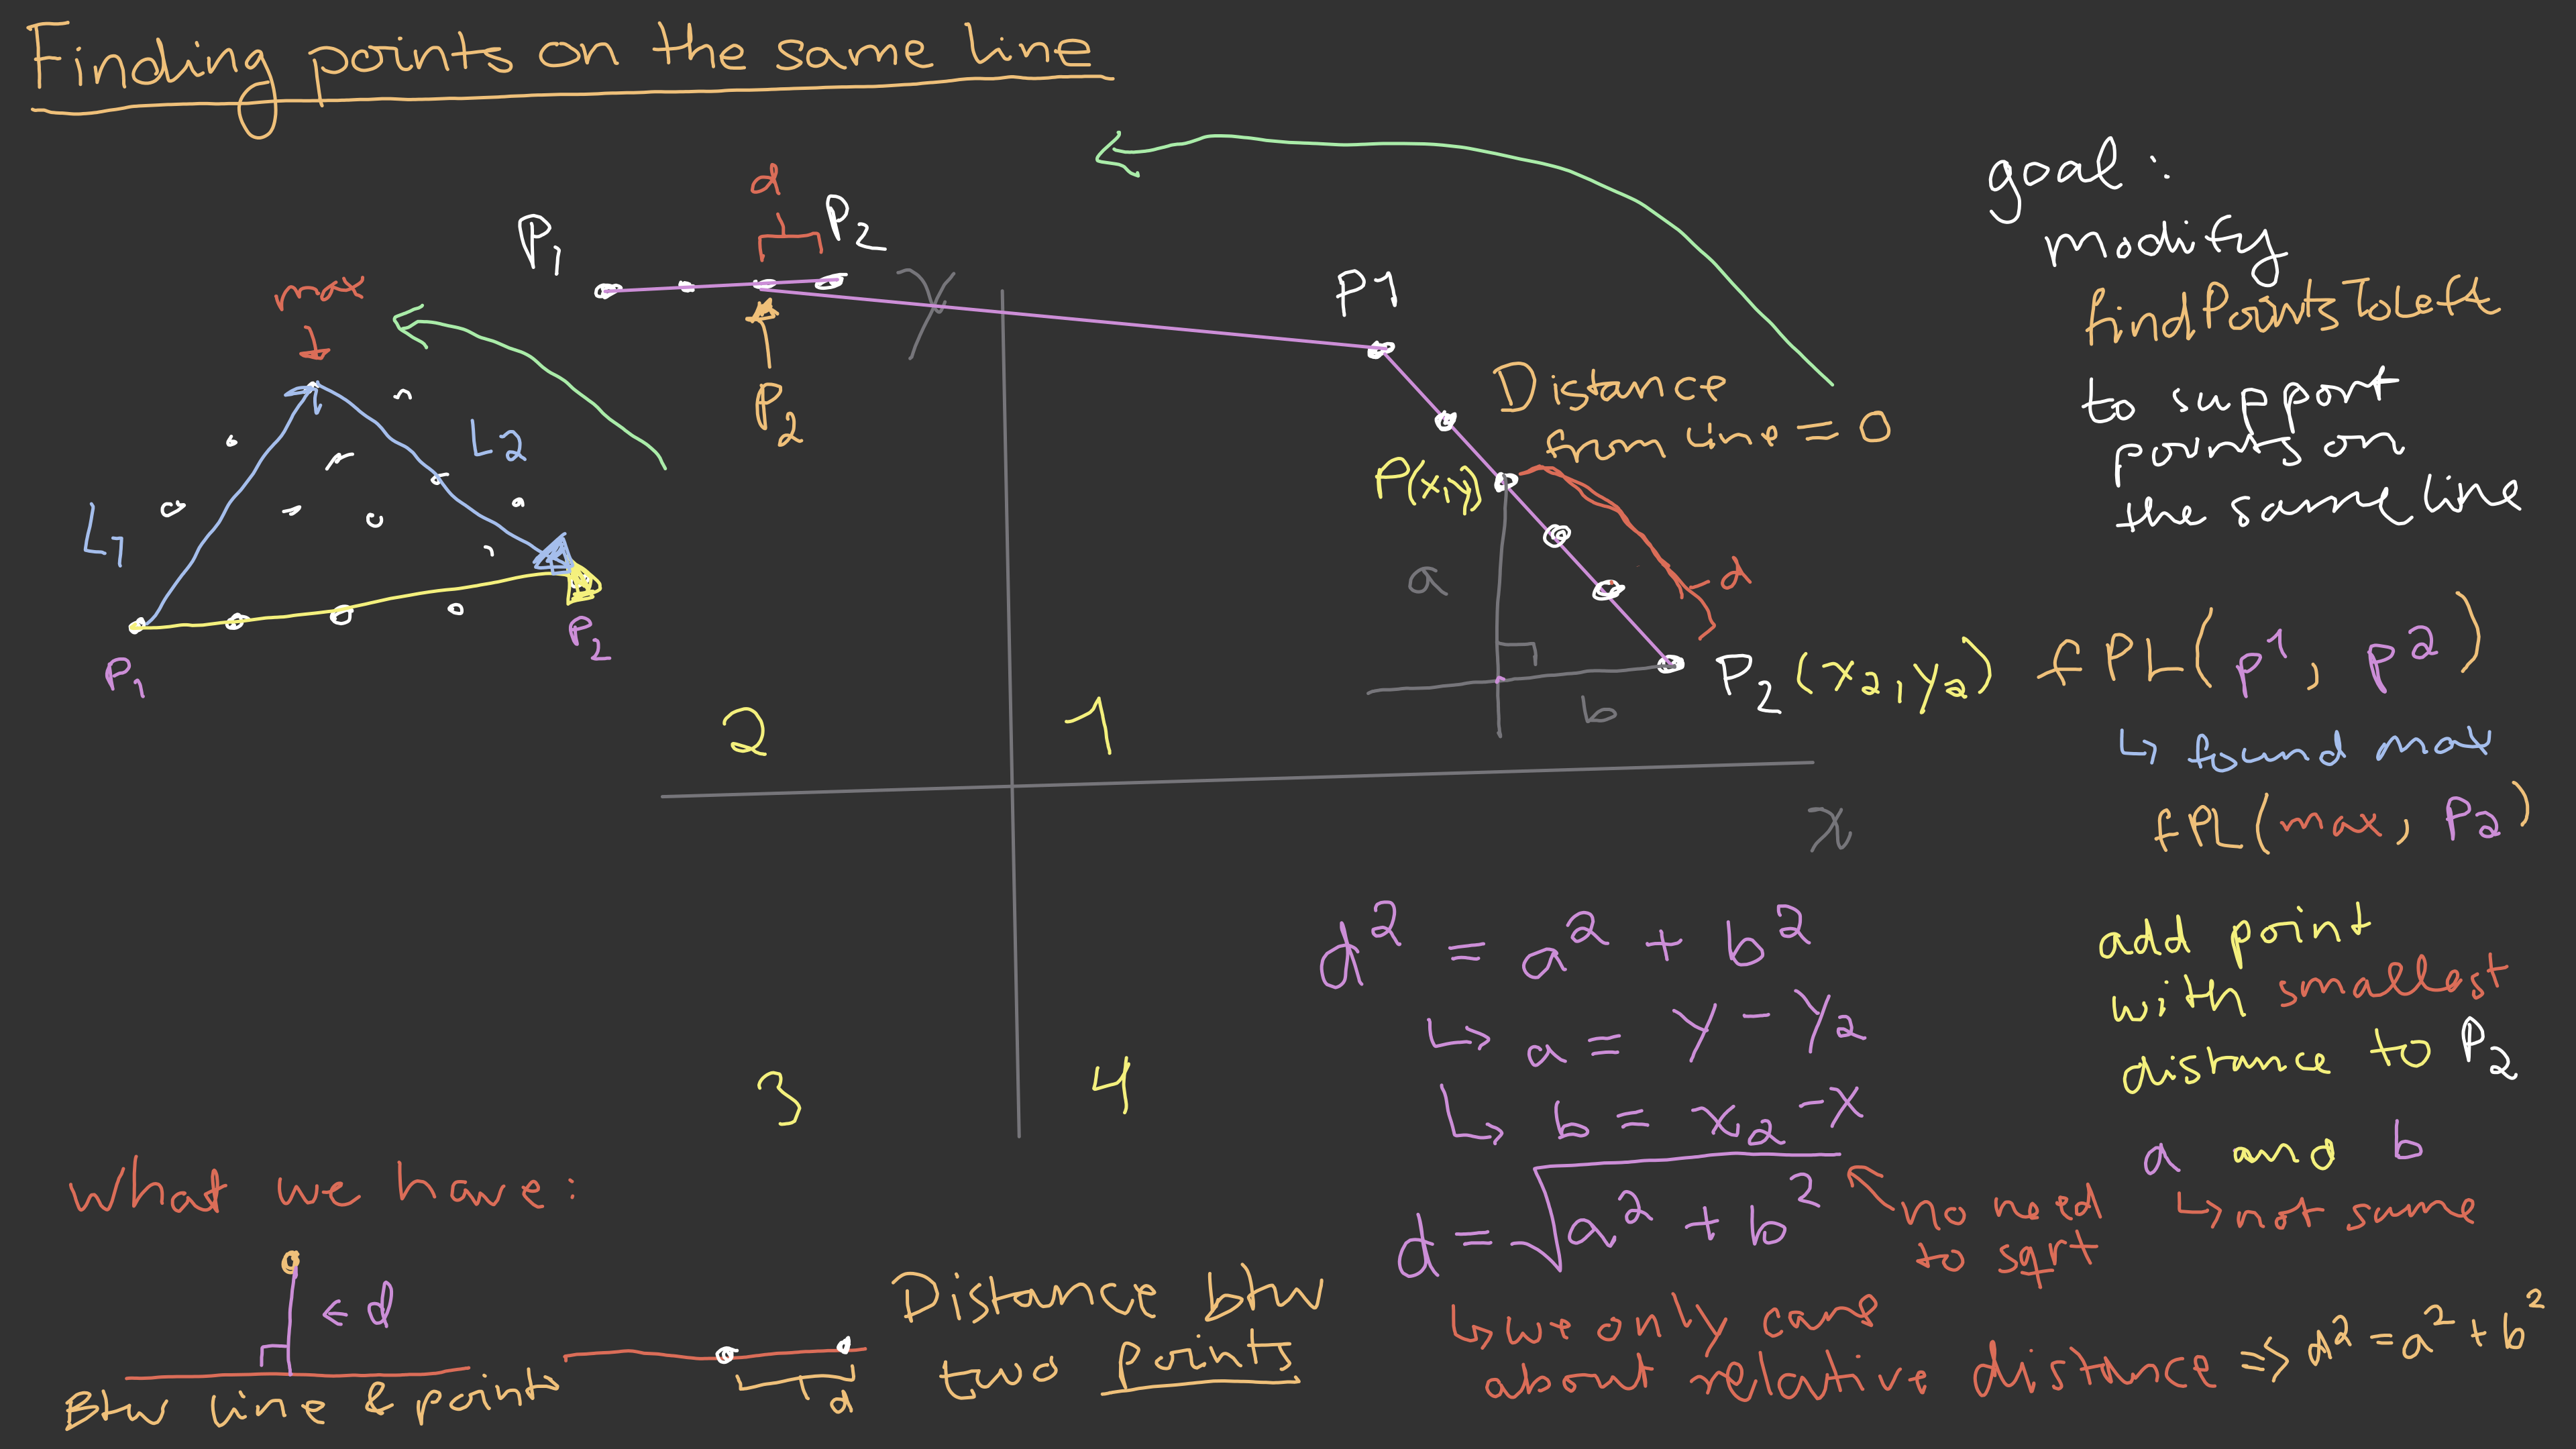 Finding points on the same line
d
P1
P2
P2
max
L1
L2
P1
P2
y
P1
Distance
from line = 0
P(x,y)
a
d
b
P2 (x2, y2)
2
1
3
4
x
goal:
modify
findPointsToLeft
to support
points on
the same line
fPL(p1, p2)
↳ found max
fPL(max, P2)
add point
with smallest
distance to P2
a and b
↳ not same
d² = a² + b²
↳ a = y - y2
↳ b = x2 - x
d = √a² + b²
no need
to sqrt
↳ we only care
about relative distance => d² = a² + b²
What we have:
← d
Btw line & points
d
Distance btw
two points